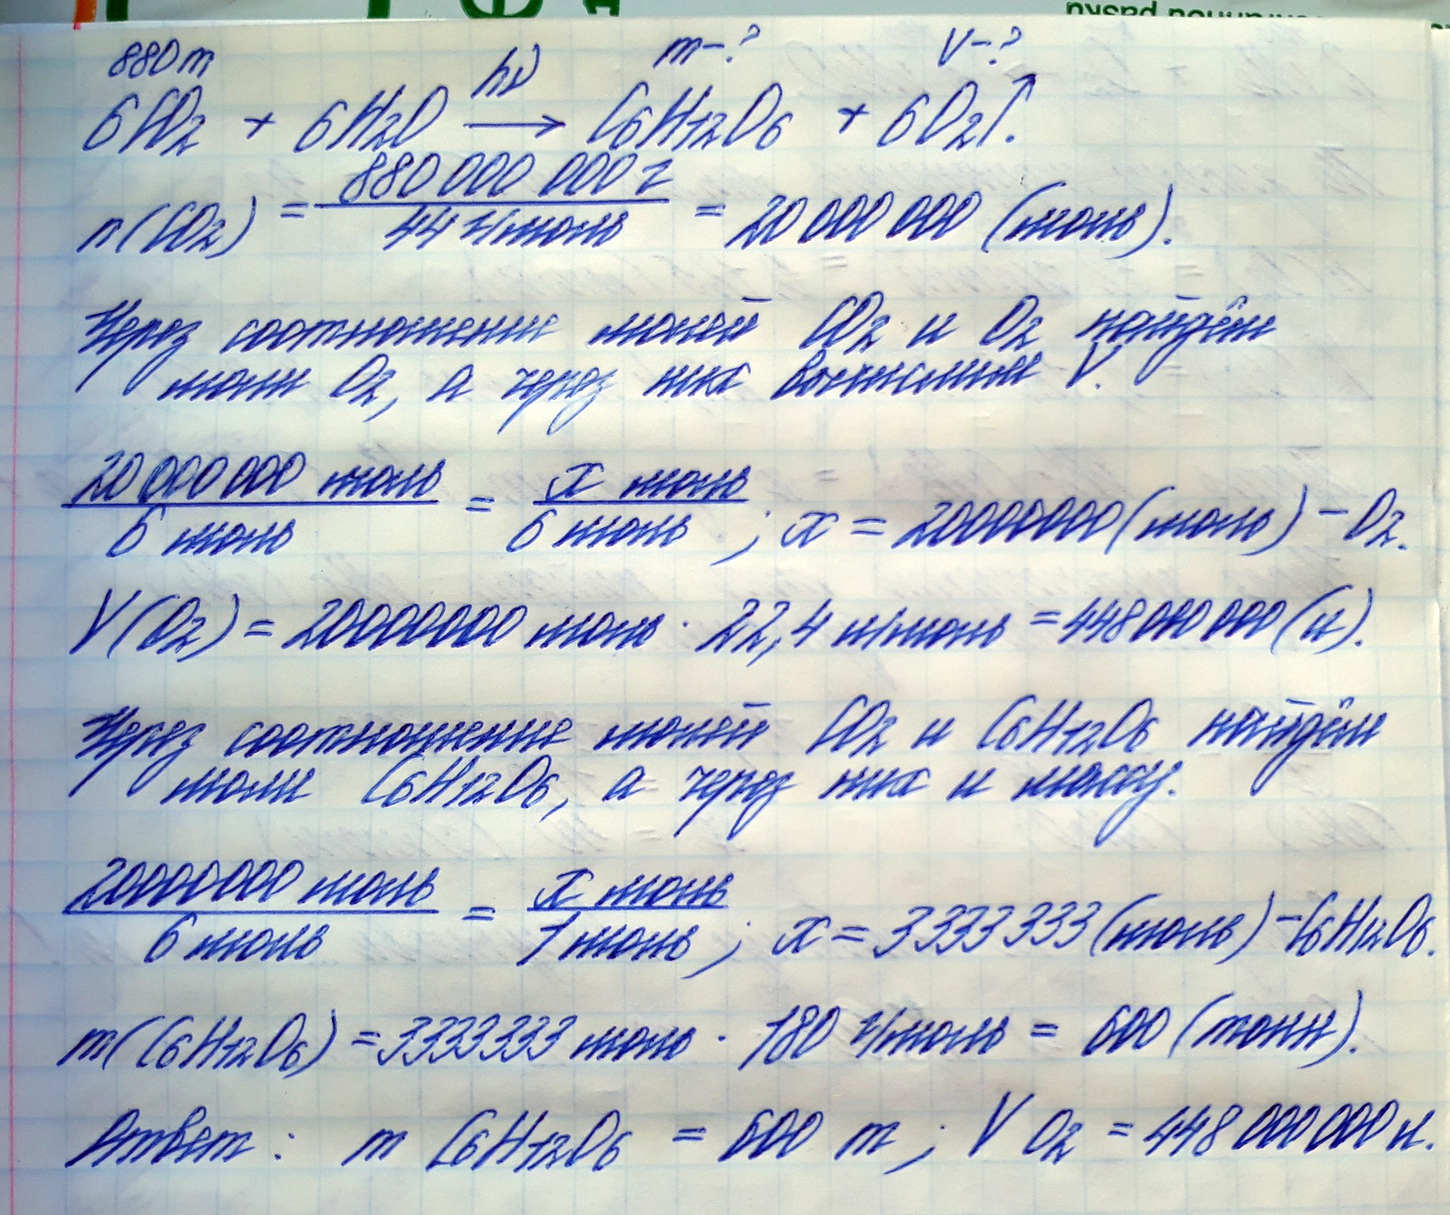 880 т m-? V-?
6CO2 + 6H2O hν → C6H12O6 + 6O2↑.
n(CO2) = 880 000 000 г / 44 г/моль = 20 000 000 (моль).
Через соотношение молей CO2 и O2 найдём
моли O2, а через них вычислим V.
20 000 000 моль / 6 моль = x моль / 6 моль ; x = 20000000 (моль) – O2.
V(O2) = 20000000 моль · 22,4 л/моль = 448 000 000 (л).
Через соотношение молей CO2 и C6H12O6 найдём
моли C6H12O6, а через них и массу.
20000000 моль / 6 моль = x моль / 1 моль ; x = 3333333 (моль) – C6H12O6.
m(C6H12O6) = 3333333 моль · 180 г/моль = 600 (тонн).
Ответ: m C6H12O6 = 600 т ; V O2 = 448 000 000 л.